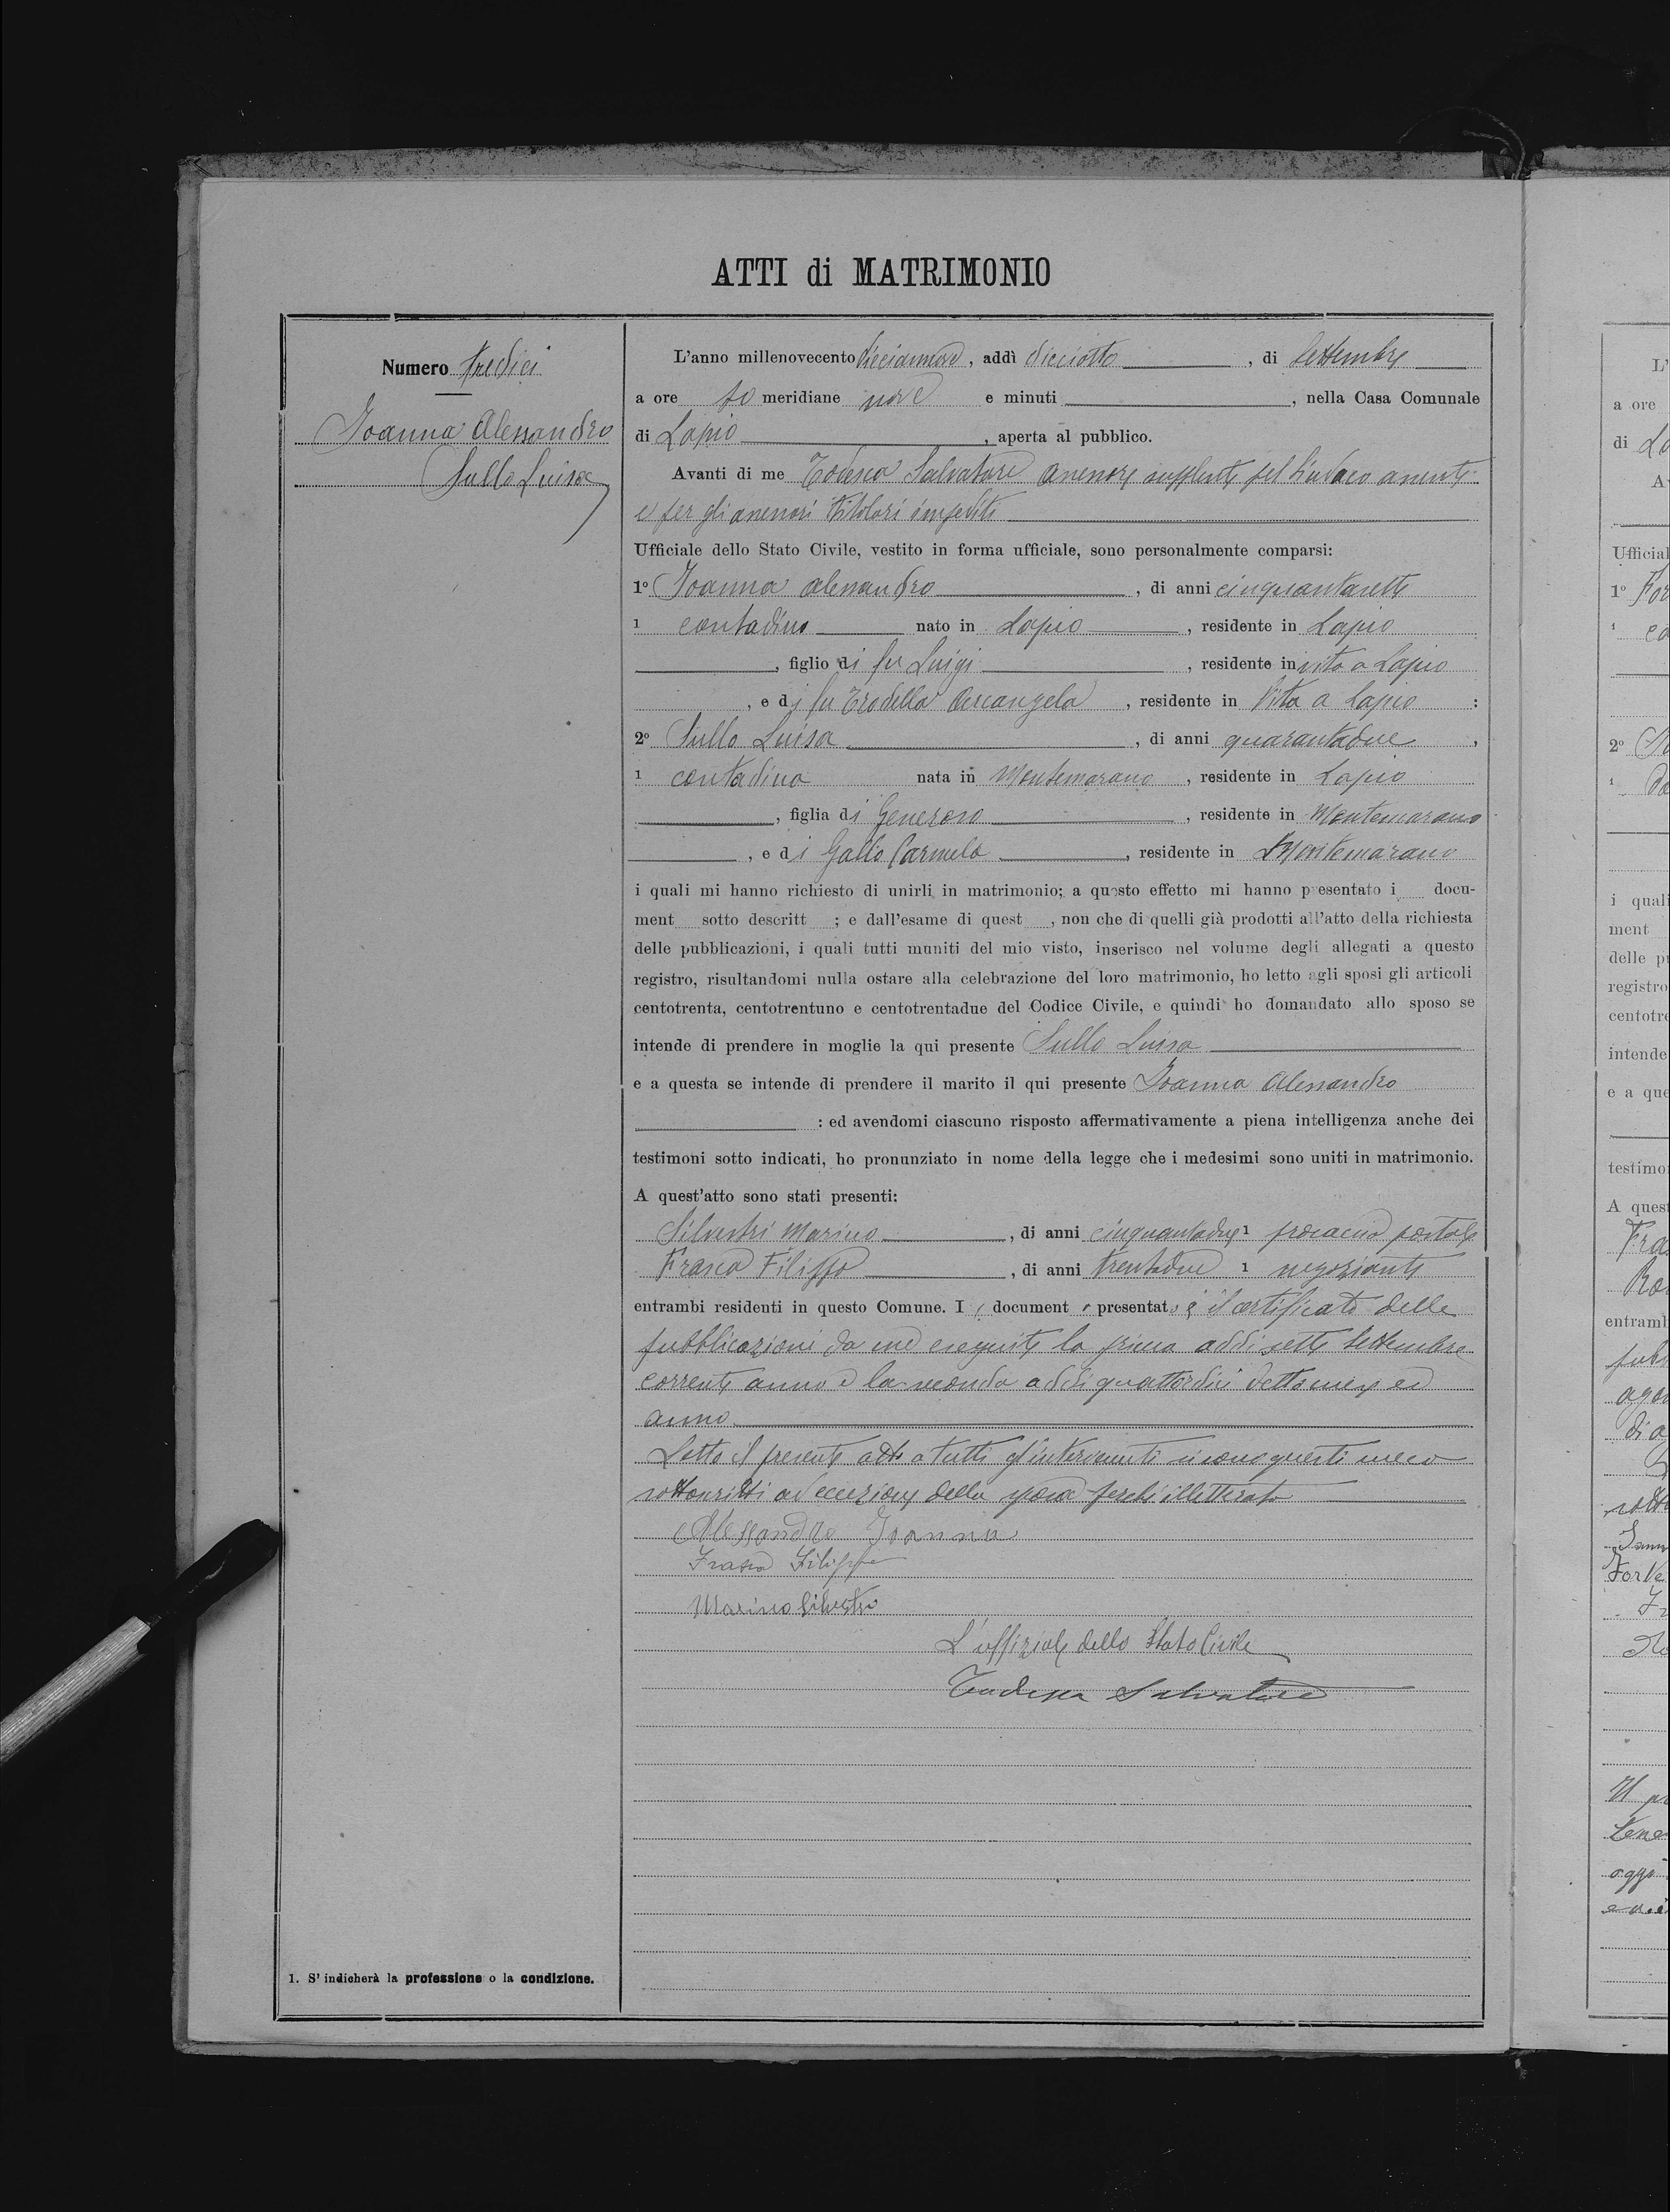 ATTI di MATRIMONIO
Numero tredici
Joanna Alessandro
Sullo Luisa
1. S' indicherà la professione o la condizione.
L'anno millenovecento diecianove, addì dicciotto, di Settembre
a ore po meridiane nove e minuti, nella Casa Comunale
di Lapio, aperta al pubblico.
Avanti di me Todesca Salvatore assessore supplente pel Sindaco assente
e per gli assessori titolari impediti
Ufficiale dello Stato Civile, vestito in forma ufficiale, sono personalmente comparsi:
1º Joanna Alessandro, di anni cinquantasette
1 contadino nato in Lapio, residente in Lapio
, figlio di fu Luigi, residente in vita a Lapio
, e di fu Trodella Arcangela, residente in Vita a Lapio :
2º Sullo Luisa, di anni quarantadue,
1 contadina nata in Montemarano, residente in Lapio
, figlia di Generoso, residente in Montemarano
, e di Gallo Carmela, residente in Montemarano
i quali mi hanno richiesto di unirli in matrimonio; a questo effetto mi hanno presentato i docu-
ment sotto descritt ; e dall'esame di quest , non che di quelli già prodotti all'atto della richiesta
delle pubblicazioni, i quali tutti muniti del mio visto, inserisco nel volume degli allegati a questo
registro, risultandomi nulla ostare alla celebrazione del loro matrimonio, ho letto agli sposi gli articoli
centotrenta, centotrentuno e centotrentadue del Codice Civile, e quindi ho domandato allo sposo se
intende di prendere in moglie la qui presente Sullo Luisa
e a questa se intende di prendere il marito il qui presente Joanna Alessandro
: ed avendomi ciascuno risposto affermativamente a piena intelligenza anche dei
testimoni sotto indicati, ho pronunziato in nome della legge che i medesimi sono uniti in matrimonio.
A quest'atto sono stati presenti:
Silvestri Marino, di anni cinquantadue 1 procaccia postale
Frasca Filippo, di anni trentadue 1 negoziante
entrambi residenti in questo Comune. I document presentat è il certificato delle
pubblicazioni da me eseguite la prima addi sette Settembre
corrente anno e la seconda addi quattordici detto mese ed
anno
Letto il presente atto a tutti gl'intervenuti si sono questi meco
sottoscritti ad eccezione della sposa perchè illetterata
Alessandro Joanna
Frasca Filippo
Marino Silvestri
L'uffiziale dello Stato Civile
Todesca Salvatore